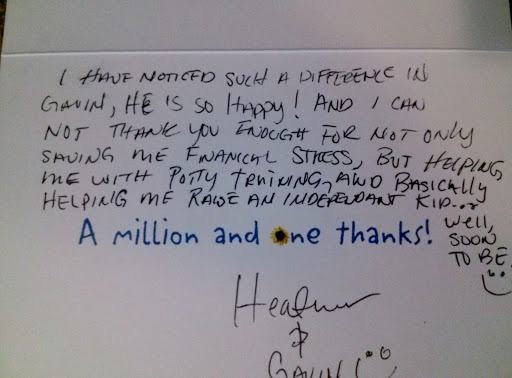 I HAVE NOTICED SUCH A DIFFERENCE IN
GAVIN, HE IS SO HAPPY! AND I CAN
NOT THANK YOU ENOUGH FOR NOT ONLY
SAVING ME FINANCIAL STRESS, BUT HELPING
ME WITH POTTY TRAINING, AND BASICALLY
HELPING ME RAISE AN INDEPENDANT KID...
WELL,
SOON
TO BE
A million and one thanks!
Heather
&
GAVIN